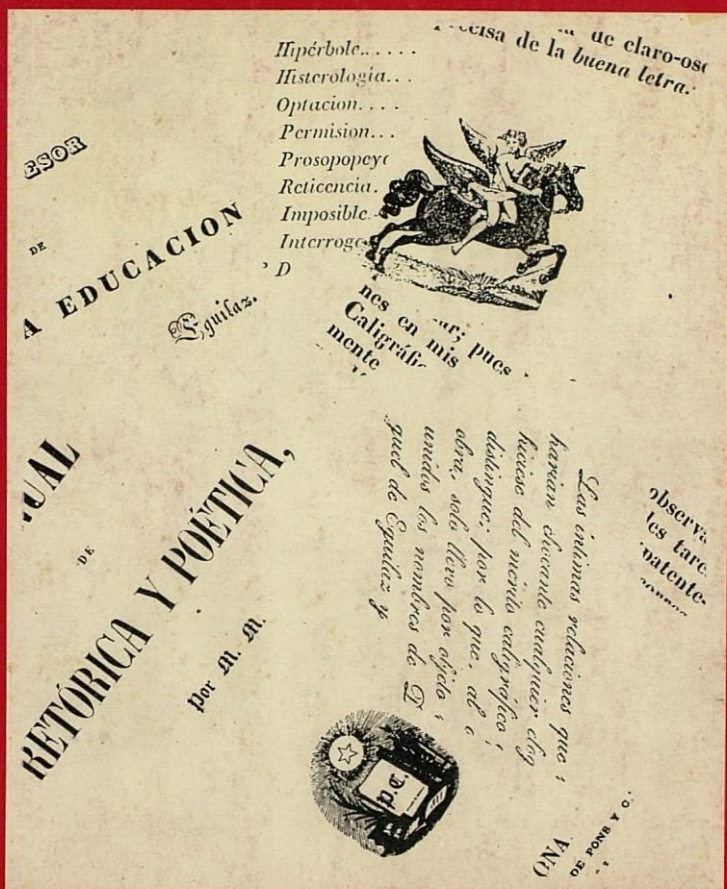 Hipérbole......
Histerologia...
Optacion....
Permision...
Prosopopeya
Reticencia.
Imposible.
Interroga
D
de claro-osc
ecisa de la buena letra.
ESOR
DE
A EDUCACION
Eguilaz.
nes en mis
Caligráfic
mente
ar; pues
UAL
DE
RETÓRICA Y POÉTICA,
Por M. M.
Las íntimas relaciones que
harian chocante cualquier elog
hiciese del mérito caligráfico
distingue; por lo que, al c
obra, solo llevo por objeto
unidos los nombres de D
guel de Eguilaz y
observa
les tare
patente
P.C.
ONA.
DE PONS Y C.